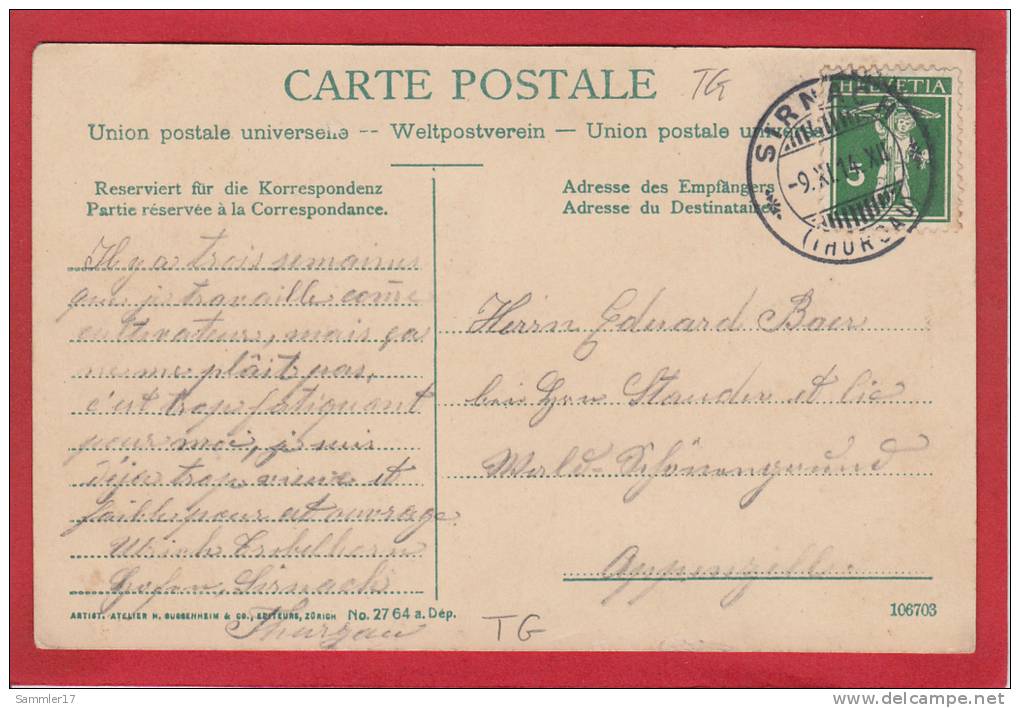 CARTE POSTALE
TG
Union postale universelle -- Weltpostverein — Union postale univers
HELVETIA
5
SIRNACH
-9.XI.14.XII
(THURGAU)
Reserviert für die Korrespondenz
Partie réservée à la Correspondance.
Adresse des Empfängers
Adresse du Destinataire
Il y a trois semaines
que je travaille come
cultivateur, mais ça
ne me plâit pas,
c'est trop fatiguant
pour moi, je suis
déja trop vieux et
faible pour cet ouvrage.
Ulrich
Hofen, Sirnach
Thurgau
Herrn Eduard Baer
bei Hrn Stauder
Wald-Schönengrund
Appenzell.
ARTIST. ATELIER H. GUGGENHEIM & CO., EDITEURS, ZÜRICH No. 2764 a. Dép.
TG
106703
Sammler17
www.delcampe.net